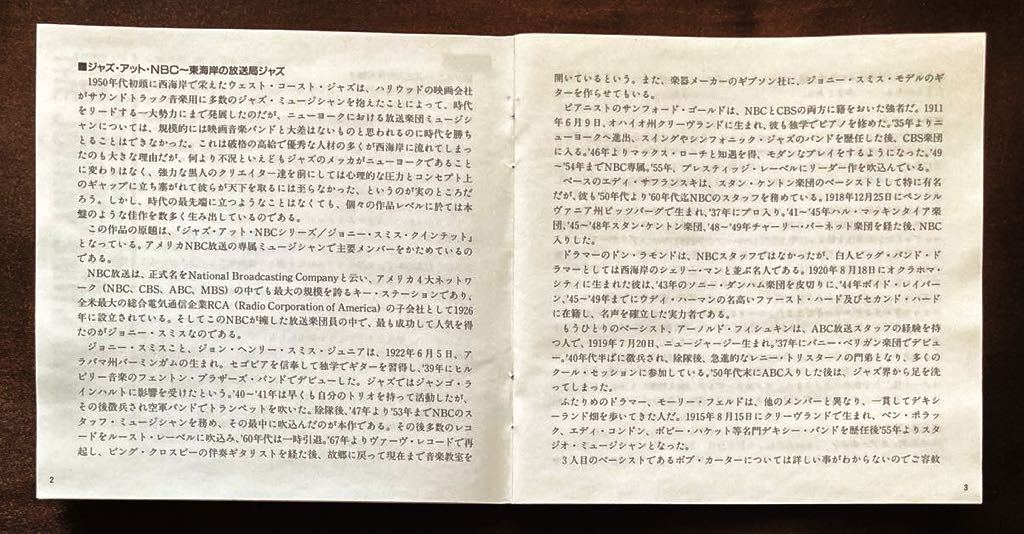 ■ジャズ・アット・NBC〜東海岸の放送局ジャズ
1950年代初頭に西海岸で栄えたウェスト・コースト・ジャズは、ハリウッドの映画会社
がサウンドトラック音楽用に多数のジャズ・ミュージシャンを抱えたことによって、時代
をリードする一大勢力にまで発展したのだが、ニューヨークにおける放送楽団ミュージシ
ャンについては、規模的には映画音楽バンドと大差はないものと思われるのに時代を勝ち
とることはできなかった。これは破格の高給で優秀な人材の多くが西海岸に流れてしまっ
たのも大きな理由だが、何より不況といえどもジャズのメッカがニューヨークであること
に変わりはなく、強力な黒人のクリエイター達を前にしては心理的な圧力とコンセプト上
のギャップに立ち塞がれて彼らが天下を取るには至らなかった、というのが実のところだ
ろう。しかし、時代の最先端に立つようなことはなくても、個々の作品レベルに於ては本
盤のような佳作を数多く生み出しているのである。
この作品の原題は、『ジャズ・アット・NBCシリーズ/ジョニー・スミス・クインテット』
となっている。アメリカNBC放送の専属ミュージシャンで主要メンバーをかためているの
である。
NBC放送は、正式名をNational Broadcasting Companyと云い、アメリカ4大ネットワ
ーク(NBC、CBS、ABC、MBS)の中でも最大の規模を誇るキー・ステーションであり、
全米最大の総合電気通信企業RCA(Radio Corporation of America)の子会社として1926
年に設立されている。そしてこのNBCが擁した放送楽団員の中で、最も成功して人気を得
たのがジョニー・スミスなのである。
ジョニー・スミスこと、ジョン・ヘンリー・スミス・ジュニアは、1922年6月5日、ア
ラバマ州バーミンガムの生まれ。セゴビアを信奉して独学でギターを習得し、'39年にヒル
ビリー音楽のフェントン・ブラザーズ・バンドでデビューした。ジャズではジャンゴ・ラ
インハルトに影響を受けたという。'40〜41年は早くも自分のトリオを持って活動したが、
その後徴兵され空軍バンドでトランペットを吹いた。除隊後、'47年より'53年までNBCのス
タッフ・ミュージシャンを務め、その最中に吹込んだのが本作である。その後多数のレコ
ードをルースト・レーベルに吹込み、'60年代は一時引退。'67年よりヴァーヴ・レコードで再
起し、ビング・クロスビーの伴奏ギタリストを経た後、故郷に戻って現在まで音楽教室を
2
開いているという。また、楽器メーカーのギブソン社に、ジョニー・スミス・モデルのギ
ターを作らせてもいる。
ピアニストのサンフォード・ゴールドは、NBCとCBSの両方に籍をおいた強者だ。1911
年6月9日、オハイオ州クリーヴランドに生まれ、彼も独学でピアノを修めた。'35年よりニ
ューヨークへ進出、スイングやシンフォニック・ジャズのバンドを歴任した後、CBS楽団
に入る。'46年よりマックス・ローチと知遇を得、モダンなプレイをするようになった。'49
〜'54年までNBC専属。'55年、プレスティッジ・レーベルにリーダー作を吹込んでいる。
ベースのエディ・サフランスキは、スタン・ケントン楽団のベーシストとして特に有名
だが、彼も'50年代より'60年代迄NBCのスタッフを務めている。1918年12月25日にペンシル
ヴァニア州ピッツバーグで生まれ、'37年にプロ入り。'41〜'45年ハル・マッキンタイア楽
団、'45〜'48年スタン・ケントン楽団、'48〜'49年チャーリー・バーネット楽団を経た後、NBC
入りした。
ドラマーのドン・ラモンドは、NBCスタッフではなかったが、白人ビッグ・バンド・ド
ラマーとしては西海岸のシェリー・マンと並ぶ名人である。1920年8月18日にオクラホマ・
シティに生まれた彼は、'43年のソニー・ダンハム楽団を皮切りに、'44年ボイド・レイバー
ン、'45〜'49年までにウディ・ハーマンの名高いファースト・ハード及びセカンド・ハード
に在籍し、名声を確立した実力者である。
もうひとりのベーシスト、アーノルド・フィシュキンは、ABC放送スタッフの経験を持
つ人で、1919年7月20日、ニュージャージー生まれ。'37年にバニー・ベリガン楽団でデビュ
ー。'40年代半ばに徴兵され、除隊後、急進的なレニー・トリスターノの門弟となり、多くの
クール・セッションに参加している。'50年代末にABC入りした後は、ジャズ界から足を洗
ってしまった。
ふたりめのドラマー、モーリー・フェルドは、他のメンバーと異なり、一貫してデキシ
ーランド畑を歩いてきた人だ。1915年8月15日にクリーヴランドで生まれ、ベン・ポラッ
ク、エディ・コンドン、ボビー・ハケット等名門デキシー・バンドを歴任後'55年よりスタ
ジオ・ミュージシャンとなった。
3人目のベーシストであるボブ・カーターについては詳しい事がわからないのでご容赦
3